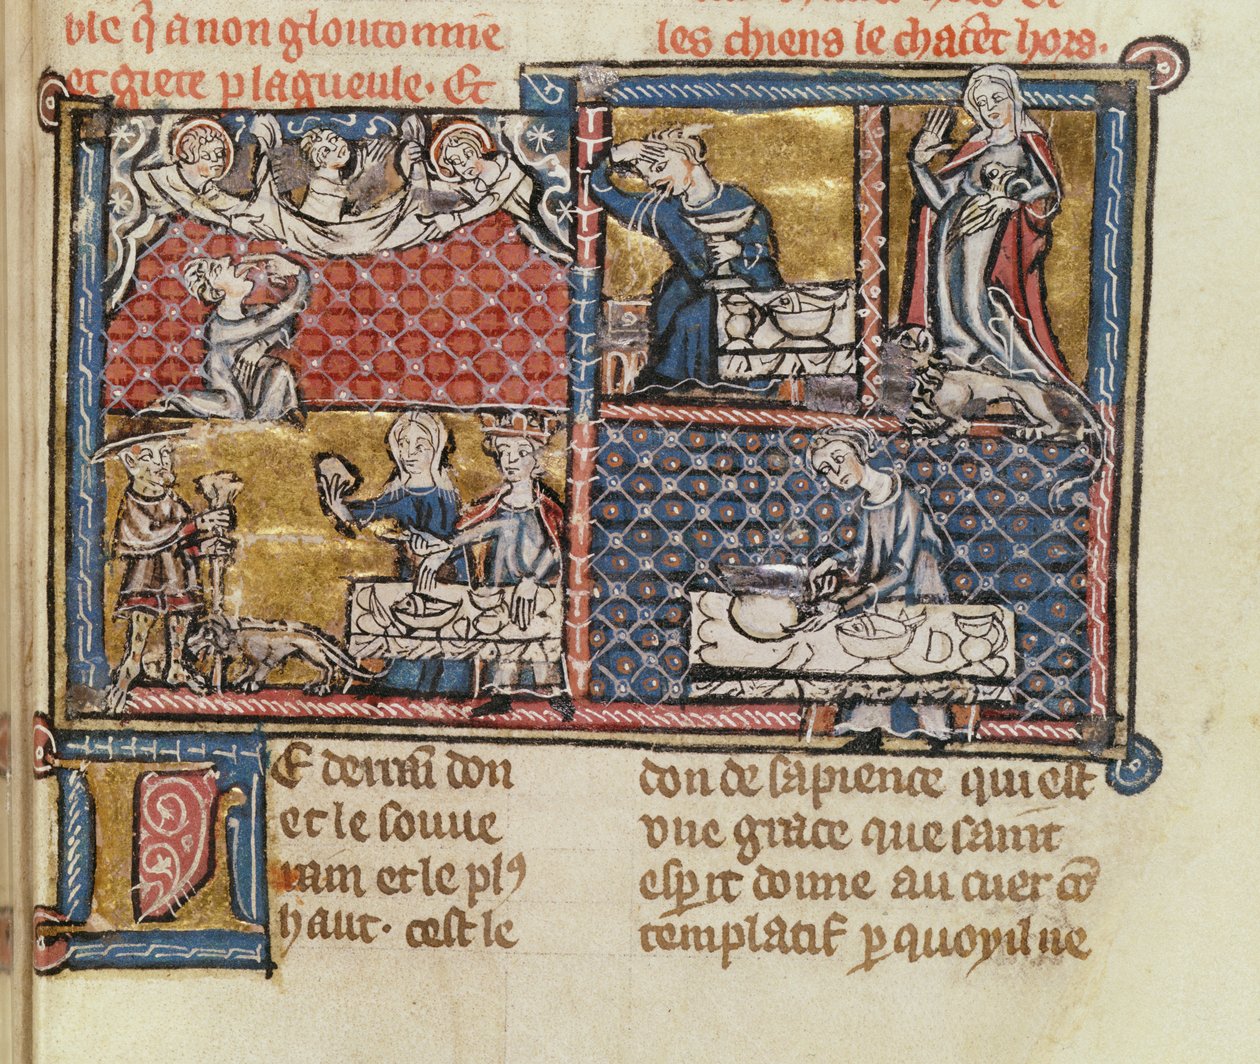 ble q̃ a non gloutonnie
et giete p la gueule. Et
les chiens le chacẽt hors.
E derrañ don
et le souue
rain et le plꝰ
haut. cest le
don de sapience qui est
vne grace que saint
esp̃it donne au cuer cõ
templatif p quoy il ne